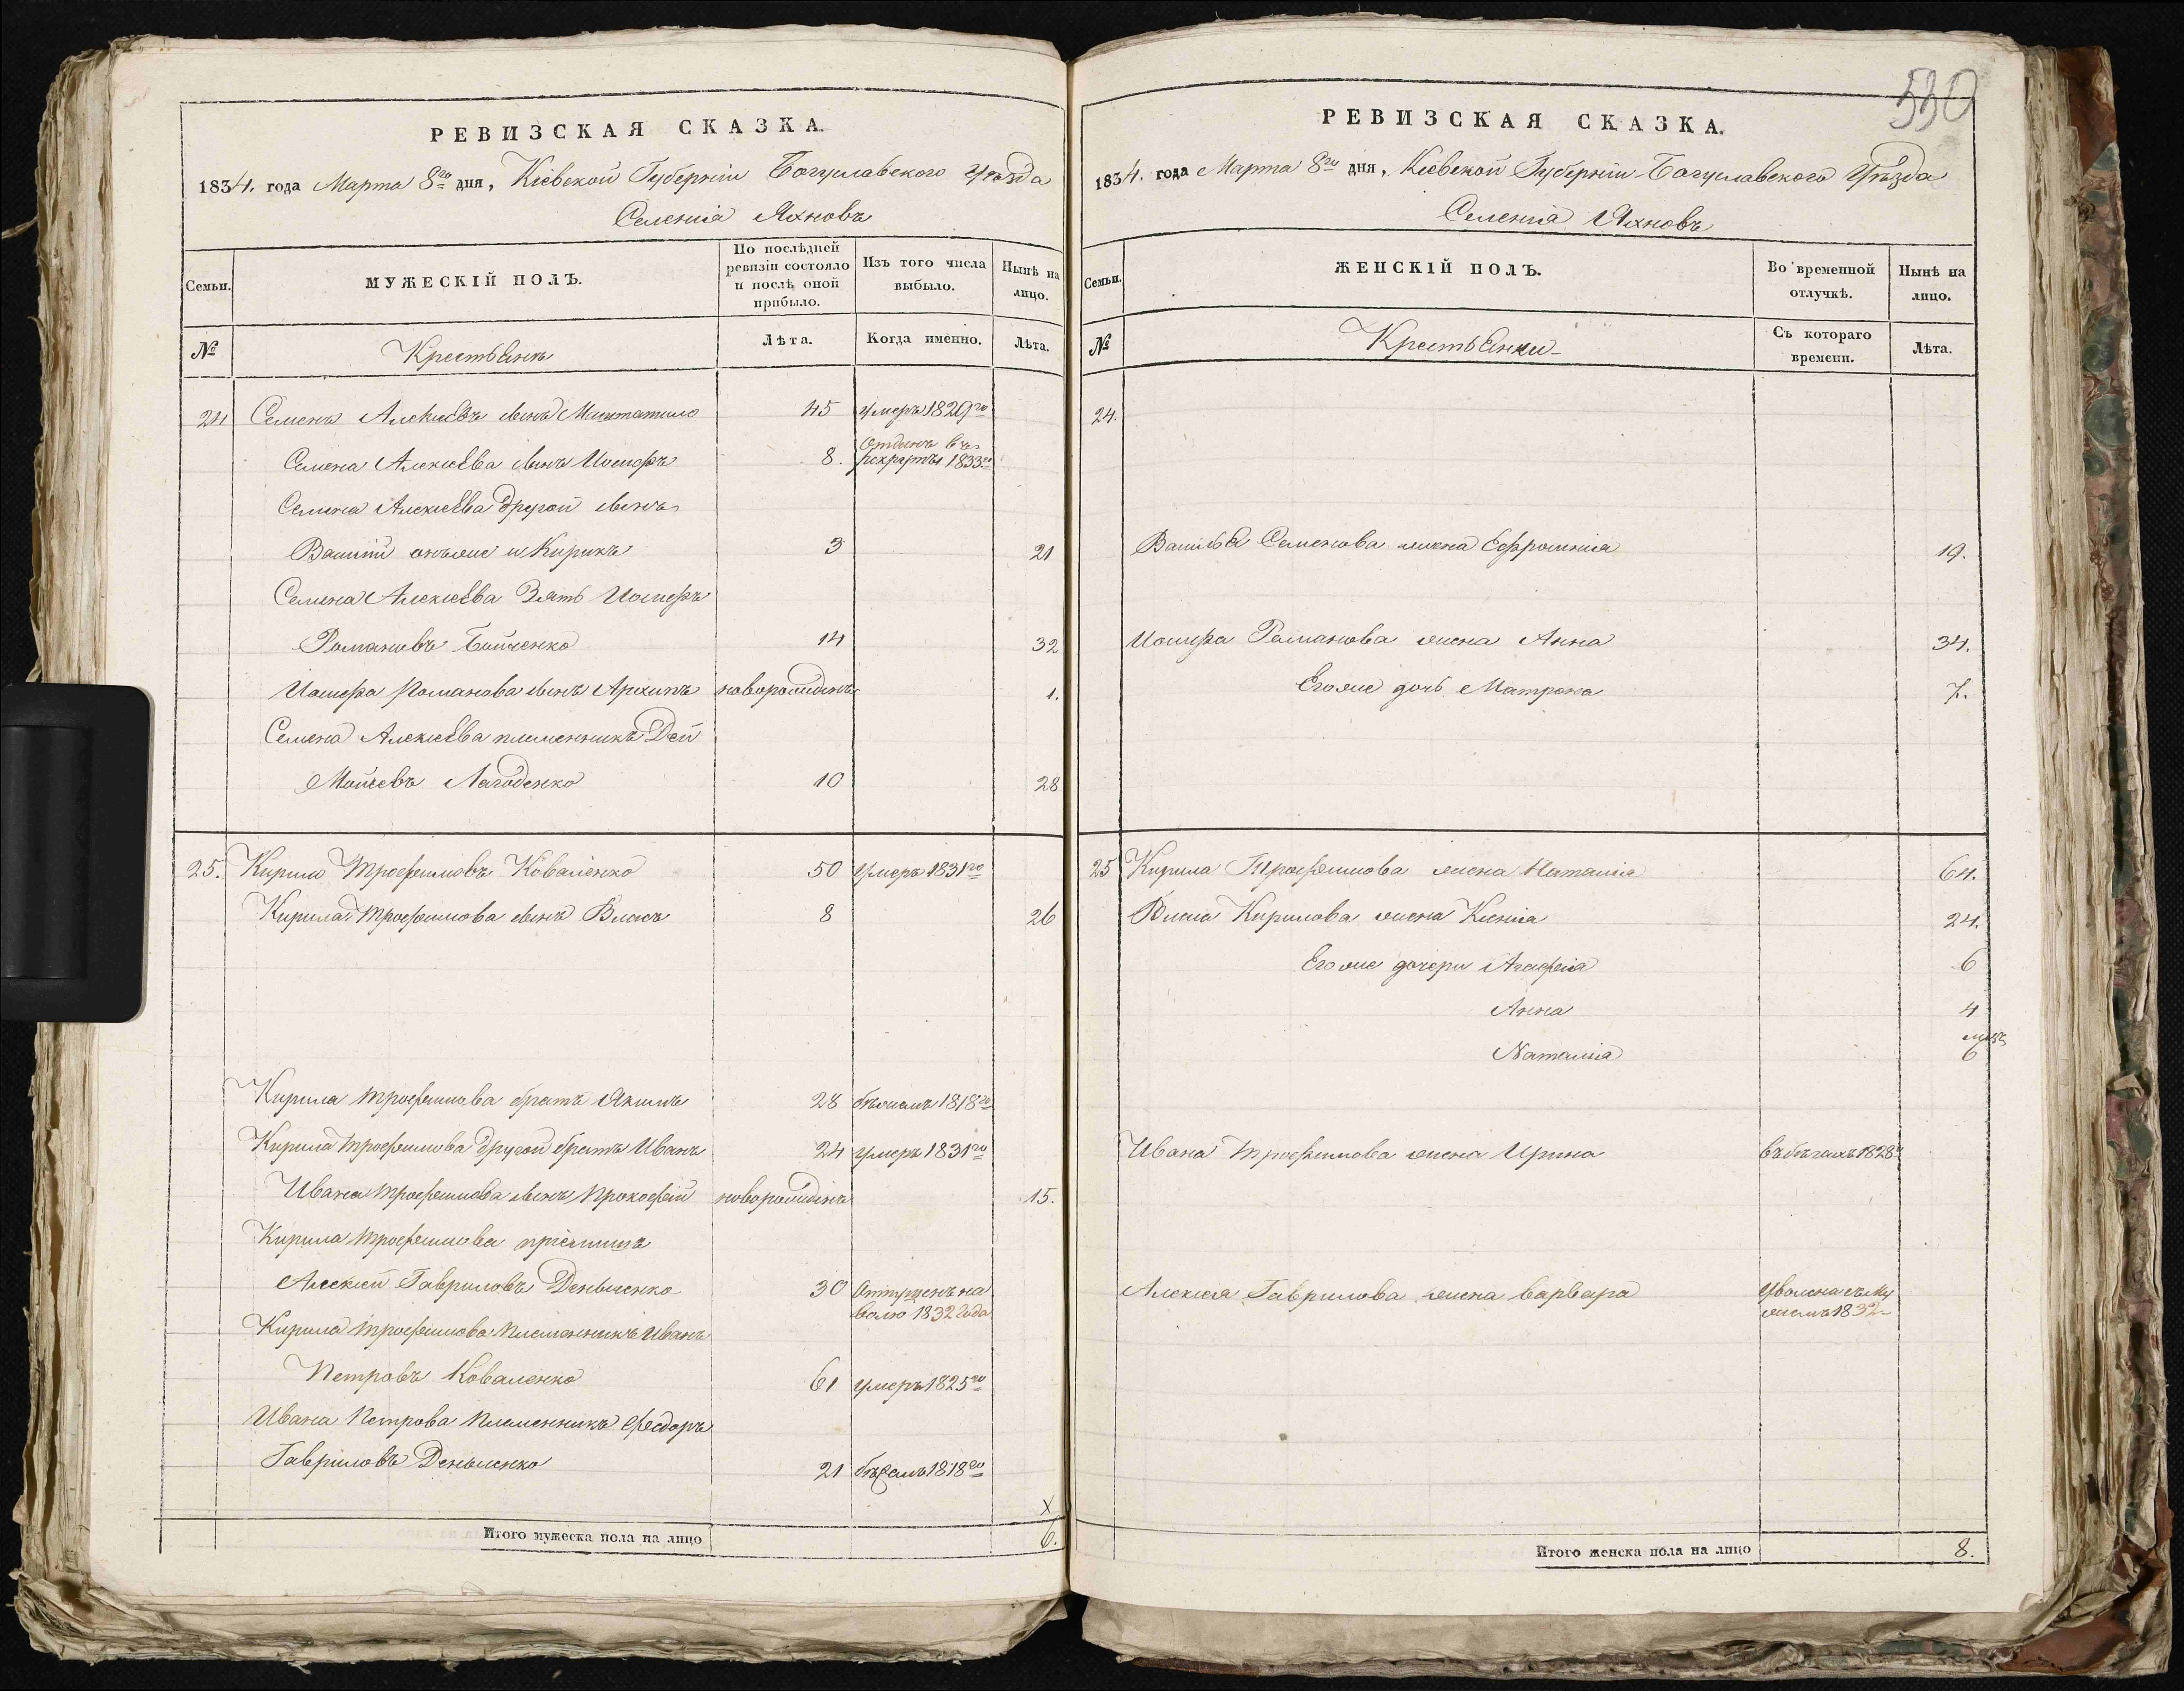 РЕВИЗСКАЯ СКАЗКА.
1834. года Марта 8го дня, Кіевской Губерніи Богуславского Уѣзда
Селенія Яхновъ
Семьи.
МУЖЕСКІЙ ПОЛЪ.
По послѣдней ревизіи состояло и послѣ оной прибыло.
Изъ того числа выбыло.
Нынѣ на лицо.
№
Крестьянъ
Лѣта.
Когда именно.
Лѣта.
24 Семенъ Алексѣевъ сынъ 45 умеръ 1829го
Семена Алексѣева сынъ Иосифъ 8. Отданъ въ рекруты 1833го
Семена Алексѣева другой сынъ
Василій онъже и Кирикъ 3 21
Семена Алексѣева Зять Иосифъ
Романовъ Бойченко 14 32
Иосифа Романова сынъ Архипъ новорожденъ 1.
Семена Алексѣева племенникъ
Моисѣевъ Лагоденко 10 28
25. Кирило Трофимовъ Коваленко 50 умеръ 1831го
Кирила Трофимова сынъ Власъ 8 26
Кирила Трофимова братъ Якимъ 28 бѣжалъ 1818го
Кирила Трофимова другой братъ Иванъ 24 умеръ 1831го
Ивана Трофимова сынъ Прокофій новорожденъ 15.
Кирила Трофимова пріемышъ
Алексѣй Гавриловъ 30 Отпущенъ на волю 1832 года
Кирила Трофимова племенникъ Иванъ
Петровъ Коваленко 61 умеръ 1825го
Ивана Петрова племенникъ Федоръ
Гавриловъ 21 бѣжалъ 1818го
х
Итого мужеска пола на лицо 6.
530
РЕВИЗСКАЯ СКАЗКА.
1834. года Марта 8го дня, Кіевской Губерніи Богуславского Уѣзда
Селенія Яхновъ
Семьи.
ЖЕНСКІЙ ПОЛЪ.
Во временной отлучкѣ.
Нынѣ на лицо.
№
Крестьянки
Съ котораго времени.
Лѣта.
24.
Василья Семенова жена Ефросинія 19.
Иосифа Романова жена Анна 34.
Егоже дочь Матрона 7.
25 Кирила Трофимова жена Наталія 64.
Власа Кирилова жена Ксенія 24.
Егоже дочери Агафія 6
Анна 4
Наталія 6
Ивана Трофимова жена Ирина въ бѣгахъ 1828
Алексѣя Гаврилова жена Варвара уволена съ мужемъ 1832
Итого женска пола на лицо 8.